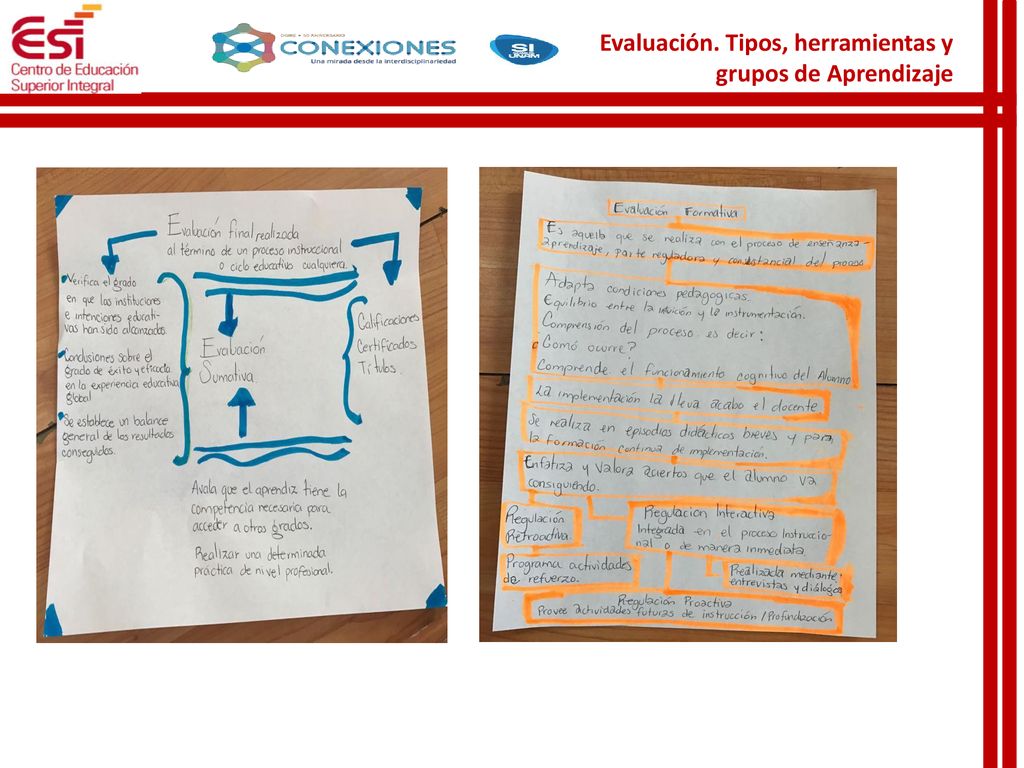 ESi
Centro de Educación
Superior Integral
CONEXIONES
Una mirada desde la interdisciplinariedad
SI
UNAM
Evaluación. Tipos, herramientas y
grupos de Aprendizaje
Evaluación final realizada
al término de un proceso instruccional
o ciclo educativo cualquiera.
Verifica el grado
en que las instituciones
e intenciones educati-
vas han sido alcanzados.
Conclusiones sobre el
grado de éxito y eficacia
en la experiencia educativa
global
Se establece un balance
general de los resultados
conseguidos.
Evaluación
Sumativa.
Calificaciones
Certificados
Títulos.
Avala que el aprendiz tiene la
competencia necesaria para
acceder a otros grados.
Realizar una determinada
práctica de nivel profesional.
Evaluación Formativa
Es aquella que se realiza con el proceso de enseñanza-
aprendizaje, parte reguladora y consustancial del proceso
Adapta condiciones pedagogicas.
Equilibrio entre la intuición y la instrumentación.
Comprensión del proceso es decir:
¿Comó ocurre?
Comprende el funcionamiento cognitivo del Alumno
La implementación la lleva acabo el docente.
Se realiza en episodios didácticos breves y para
la formación continua de implementación.
Enfatiza y valora aciertos que el alumno va
consiguiendo.
Regulación
Retroactiva.
Programa actividades
de refuerzo.
Regulacion Interactiva
Integrada en el proceso Instruccio-
nal o de manera inmediata
Realizada mediante:
entrevistas y diálogos
Regulación Proactiva
Provee actividades futuras de instrucción / Profundización